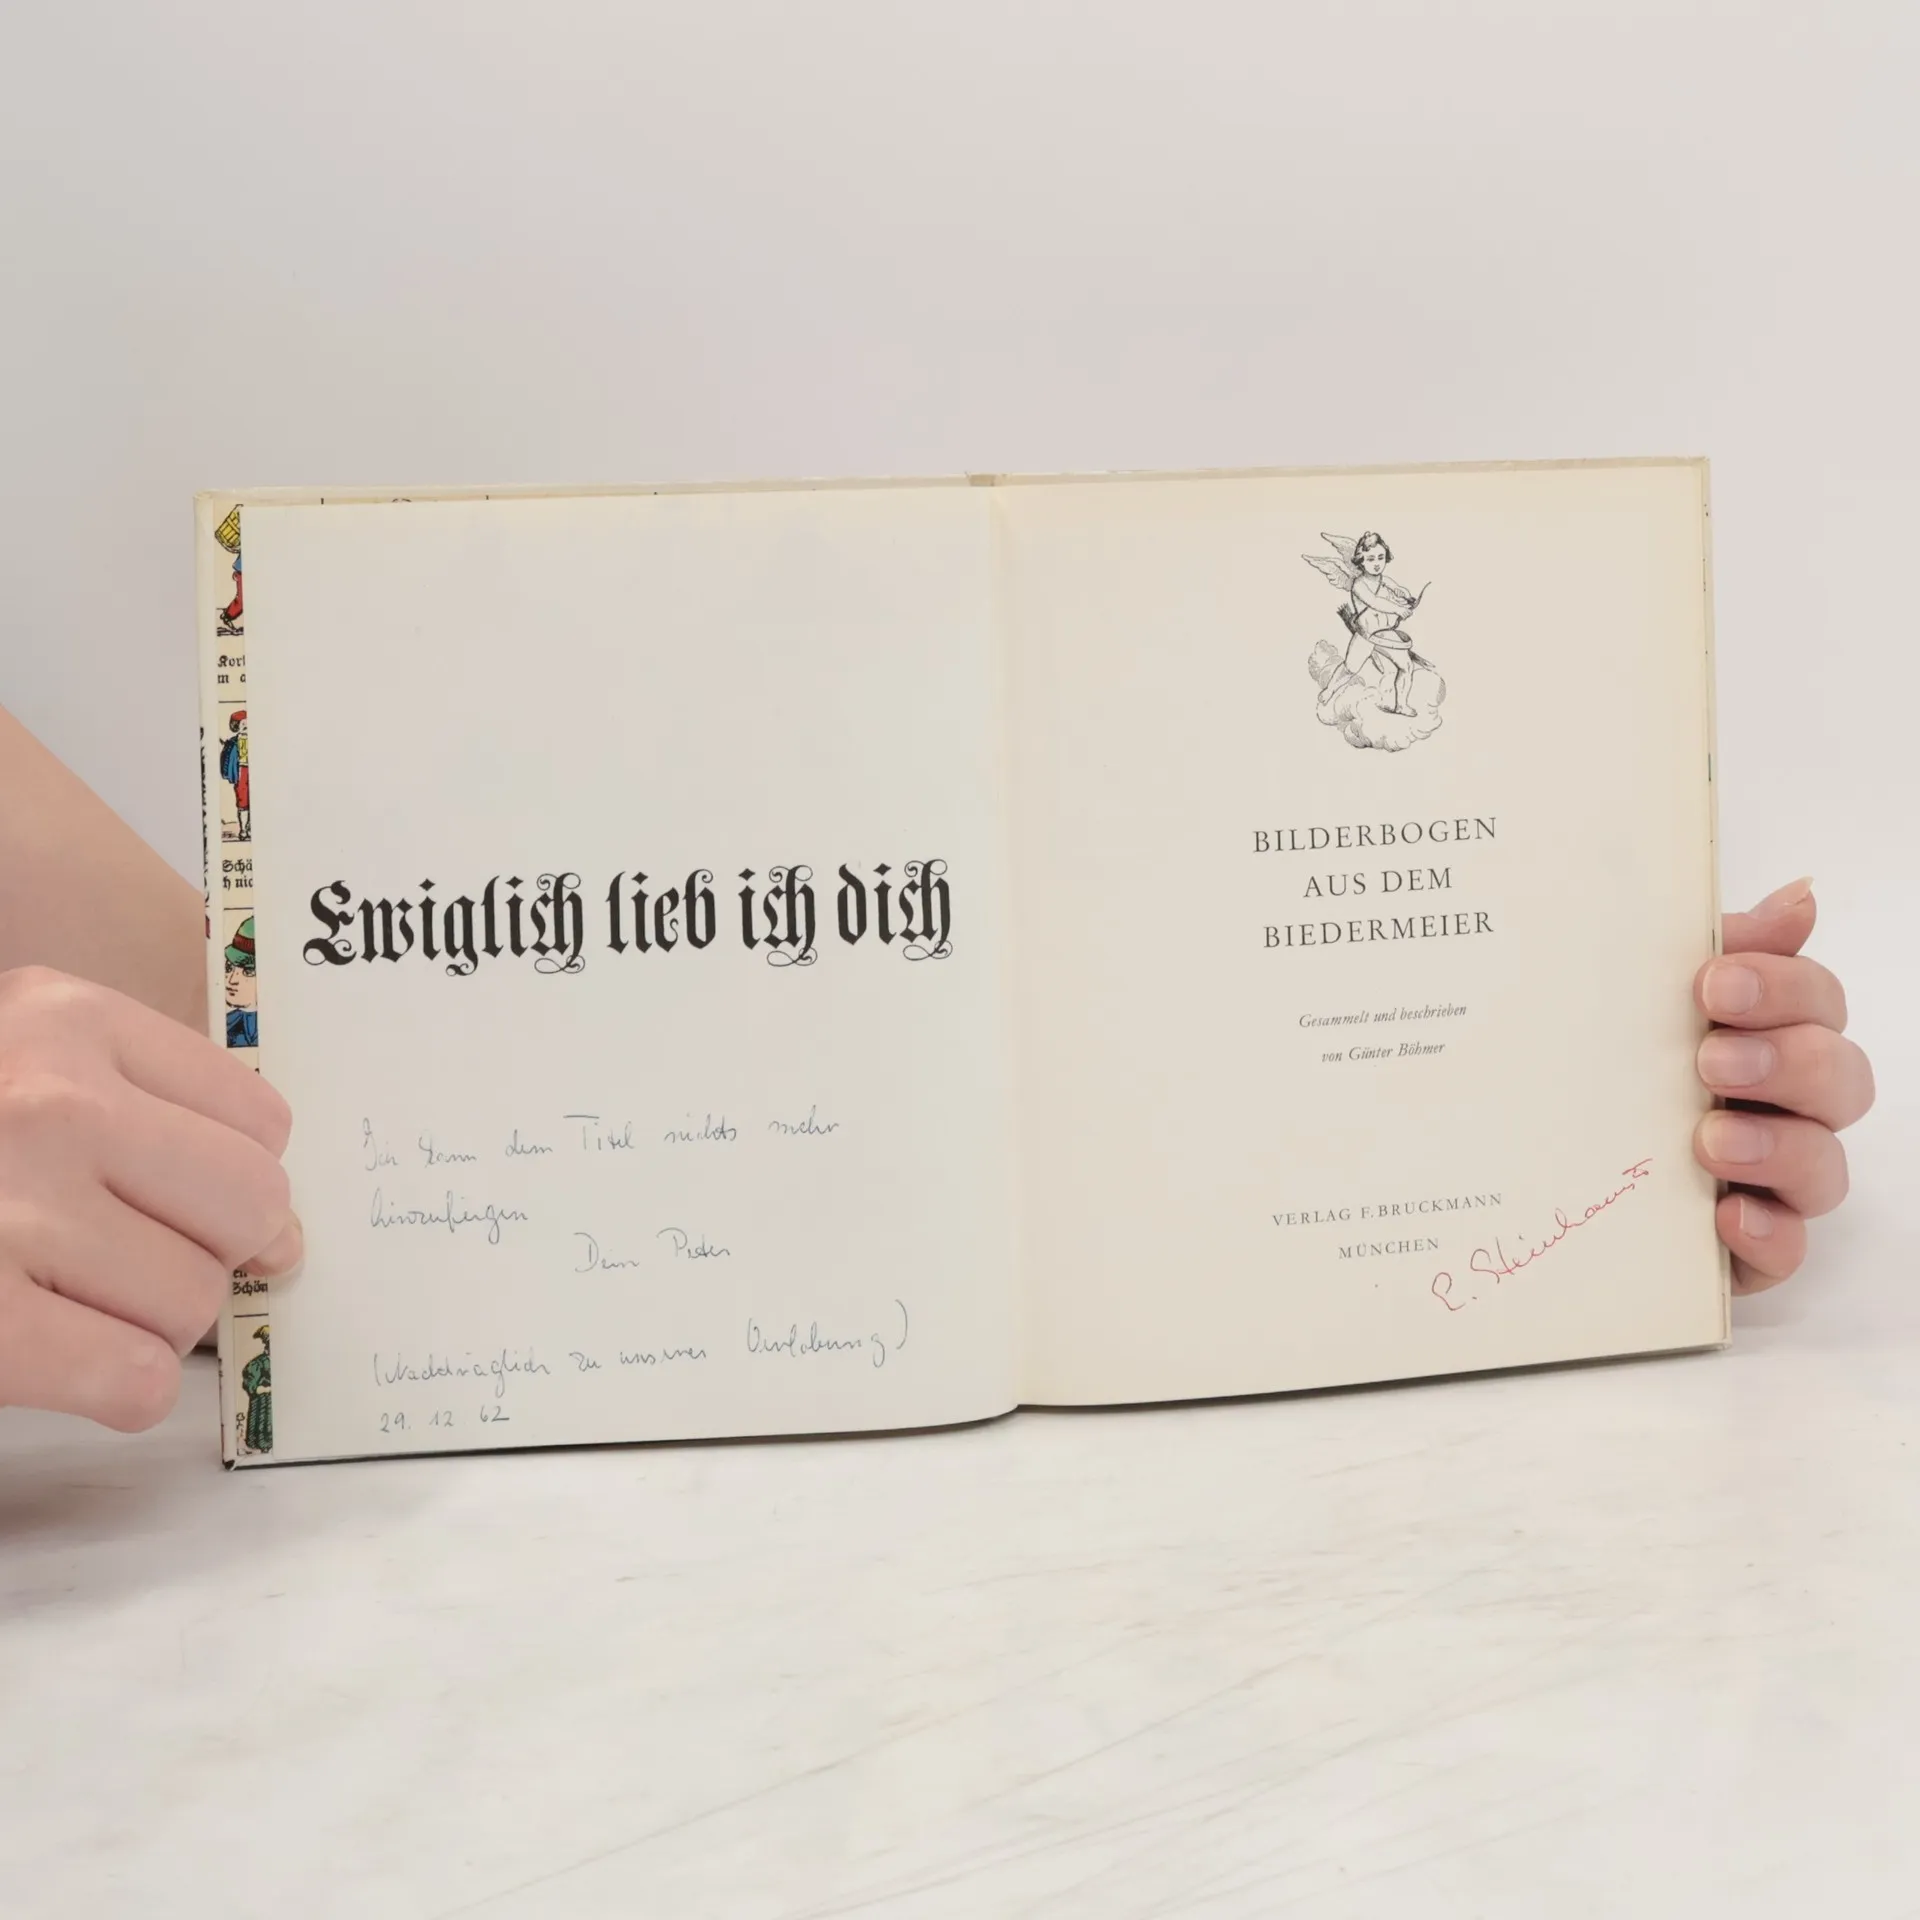 Ewiglich lieb ich dich
Ich kann dem Titel nichts mehr
hinzufügen
Dein Peter
(Nachträglich zu unserer Verlobung)
29. 12. 62
BILDERBOGEN
AUS DEM
BIEDERMEIER
Gesammelt und beschrieben
von Günter Böhmer
VERLAG F. BRUCKMANN
MÜNCHEN
E. Steinhaus